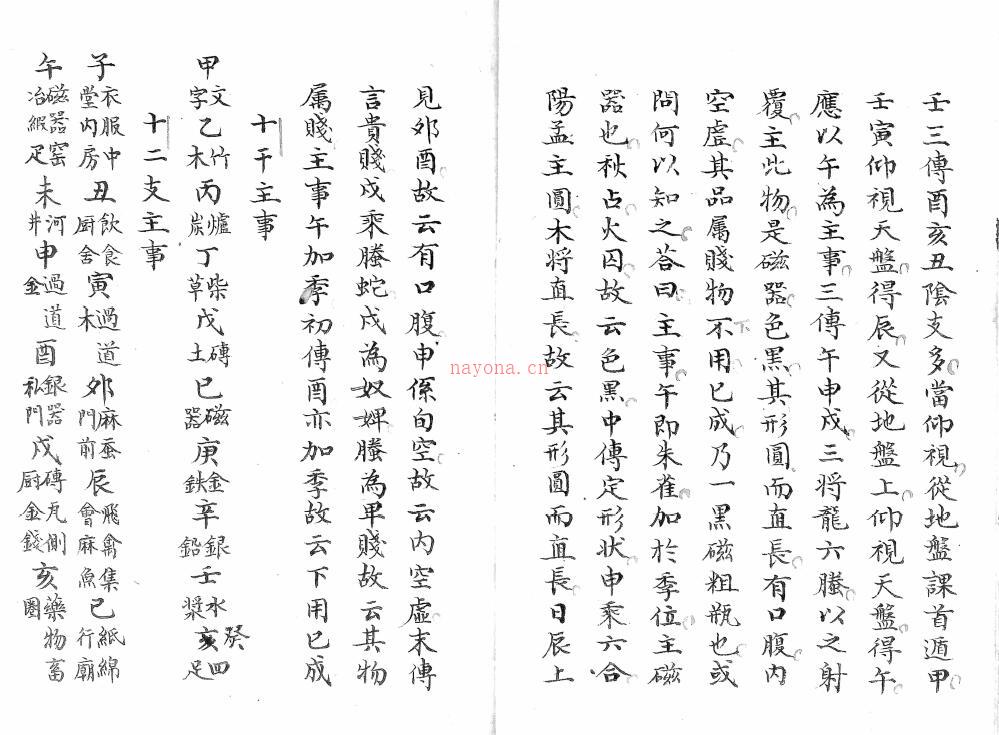 壬三傳酉亥丑陰支多當仰視從地盤課首遁甲
壬寅仰視天盤得辰又從地盤上仰視天盤得午
應以午為主事三傳午申戌三將龍六螣以之射
覆主此物是磁器色黑其形圓而直長有口腹内
空虛其品属賤物不用已成乃一黑磁粗瓶也或
下
問何以知之答曰主事午即朱雀加於季位主磁
器也秋占火囚故云色黑中傳定形状申乘六合
陽孟主圓木将直長故云其形圓而直長日辰上
見卯酉故云有口腹申係旬空故云内空虛末傳
言貴賤戌乘螣蛇戌為奴婢螣為卑賤故云其物
属賤主事午加季初傳酉亦加季故云下用已成
十干主事
甲文字乙竹木丙爐炭丁柴草戊磚土巳磁器庚金鉄辛銀鉛壬水漿癸亥四足
十二支主事
子衣服中堂内房丑飲食厨舍寅過道木卯麻蚕門前辰飛禽集會麻魚巳紙綿行廟
午磁器窑冶緞疋未河井申過道金酉銀器私門戌磚瓦側厨金錢亥藥物畜圏
nayona.cn